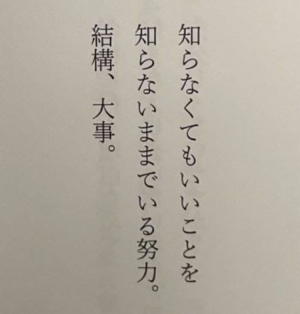 知らなくてもいいことを
知らないままでいる努力。
結構、大事。